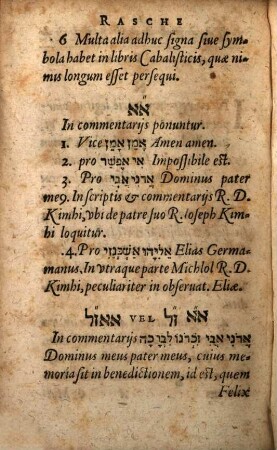 RASCHE
6 Multa alia adhuc signa siue sym-
bola habet in libris Cabalisticis, quæ ni-
mis longum esset persequi.
א״א
In commentarijs ponuntur.
1. Vice אָמֵן אָמֵן Amen amen.
2. pro אִי אֶפְשָׁר Impossibile est.
3. Pro אֲדֹנִי אָבִי Dominus pater
me9. In scriptis & commentarijs R. D.
Kimhi, vbi de patre suo R. Ioseph Kim-
hi loquitur.
.4. Pro אֵלִיָּהוּ אַשְׁכְּנַזִי Elias Germa-
manus. In vtraque parte Michlol R. D.
Kimhi, peculiariter in obseruat. Eliæ.
א״א ז״ל VEL אאז״ל
In commentarijs אֲדֹנִי אָבִי זִכְרוֹנוֹ לִבְרָכָה
Dominus meus pater meus, cuius me-
moria sit in benedictionem, id est, quem
Felix